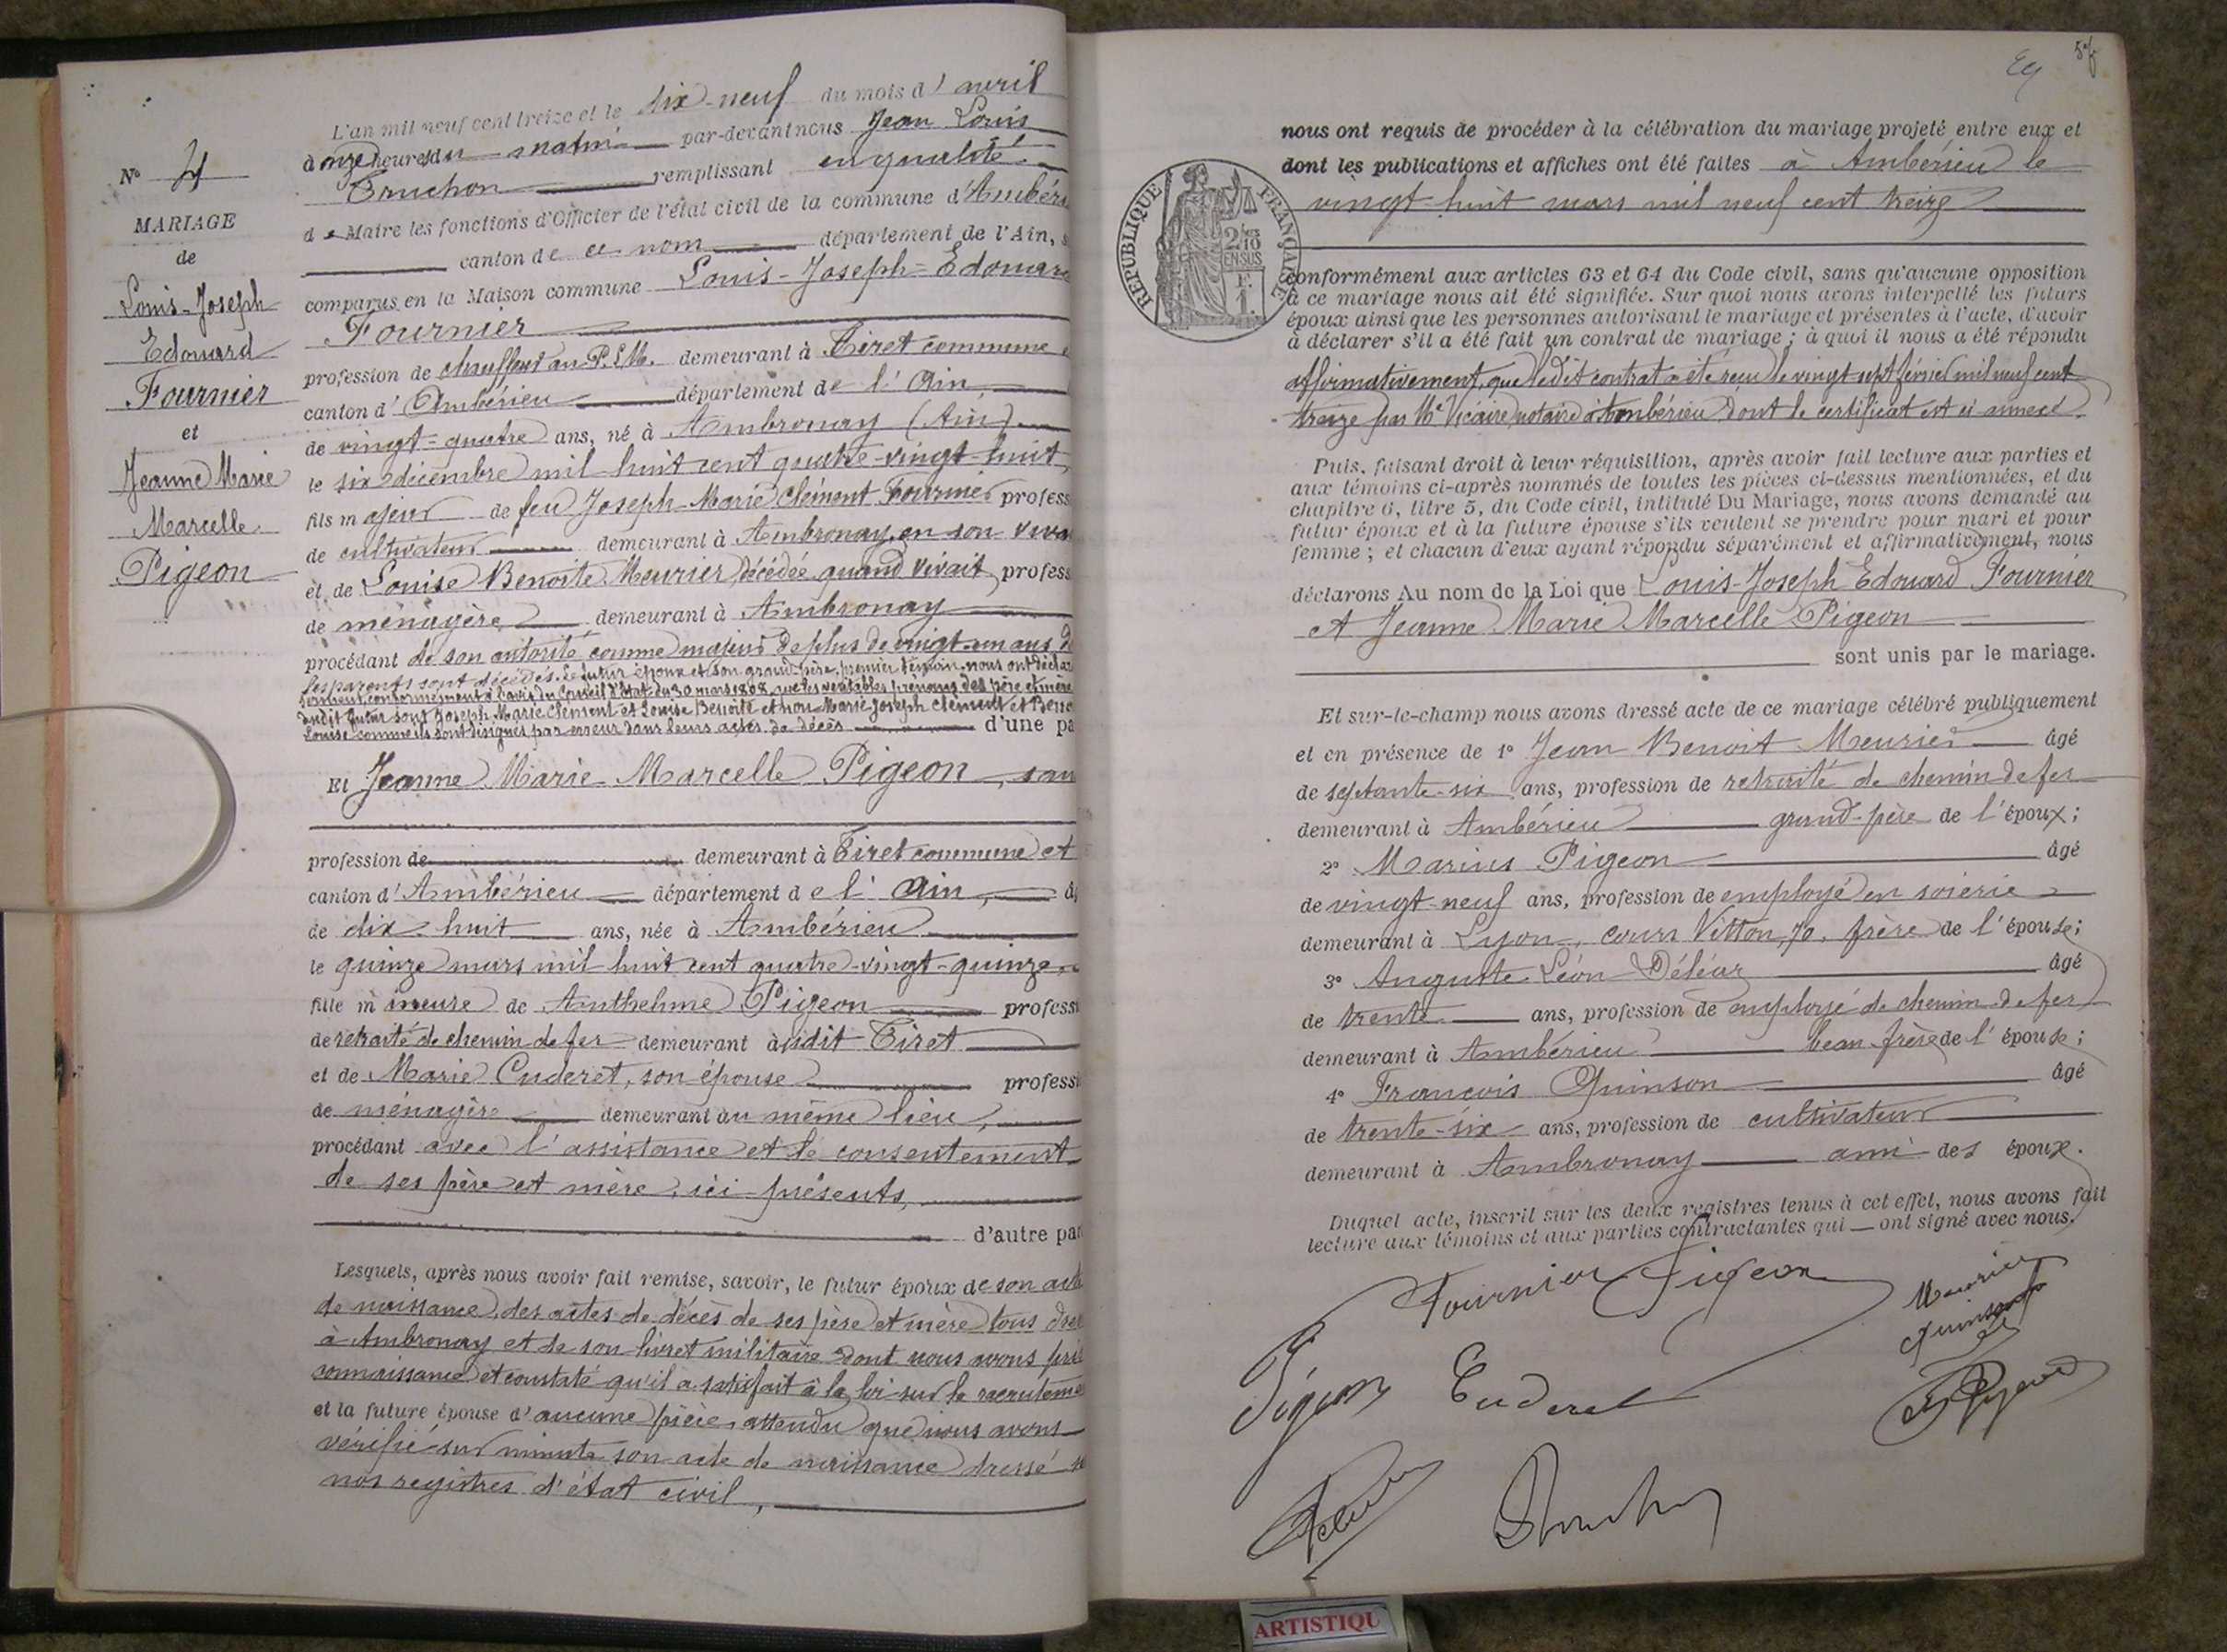 L'an mil neuf cent treize et le dix-neuf du mois d'avril
à onze heures du matin par-devant nous Jean Louis
Truchon remplissant en qualité
de Maire les fonctions d'Officier de l'état civil de la commune d'Ambéri
canton de ce nom département de l'Ain, s
comparus en la Maison commune Louis-Joseph-Edouard
Fournier
profession de chauffeur au P.L.M. demeurant à Tiret commune
canton d'Ambérieu département de l'Ain
de vingt-quatre ans, né à Ambronay (Ain)
le six décembre mil huit cent quatre-vingt-huit
fils majeur de feu Joseph-Marie Clément Fournier profess
de cultivateur demeurant à Ambronay en son viva
et de Louise Benoite Meurier, décédée quand vivait profess
de ménagère demeurant à Ambronay
procédant de son autorité comme majeur de plus de vingt-un ans d
ses parents sont décédés. Le futur époux et son grand-père, premier témoin, nous ont déclar
conformément à l'avis du Conseil d'Etat du 30 mars 1808, que les véritables prénoms des père et mère
dudit futur sont Joseph Marie Clément et Louise Benoite et non Marie Joseph Clément et Beno
Louise comme ils sont désignés par erreur dans leurs actes de décès d'une pa
Et Jeanne Marie-Marcelle Pigeon, san
profession de demeurant à Tiret commune et
canton d'Ambérieu département de l'Ain,
de dix-huit ans, née à Ambérieu
le quinze mars mil huit cent quatre-vingt-quinze,
fille mineure de Anthelme Pigeon professi
de retraité de chemin de fer demeurant audit Tiret
et de Marie Cuderet, son épouse professi
de ménagère demeurant au même lieu,
procédant avec l'assistance et le consentement
de ses père et mère, ici présents,
d'autre par
Lesquels, après nous avoir fait remise, savoir, le futur époux de son acte
de naissance, des actes de décès de ses père et mère tous dres
à Ambronay et de son livret militaire dont nous avons pris
connaissance et constaté qu'il a satisfait à la loi sur le recruteme
et la future épouse d'aucune pièce, attendu que nous avons
vérifié sur minute son acte de naissance dressé
nos registres d'état civil,
N° 4
MARIAGE
de
Louis-Joseph
Edouard
Fournier
et
Jeanne Marie
Marcelle
Pigeon
nous ont requis de procéder à la célébration du mariage projeté entre eux et
dont les publications et affiches ont été faites à Ambérieu le
vingt-huit mars mil neuf cent treize
RÉPUBLIQUE FRANÇAISE
2/10
EN SUS
F.
1.
conformément aux articles 63 et 64 du Code civil, sans qu'aucune opposition
à ce mariage nous ait été signifiée. Sur quoi nous avons interpellé les futurs
époux ainsi que les personnes autorisant le mariage et présentes à l'acte, d'avoir
à déclarer s'il a été fait un contrat de mariage ; à quoi il nous a été répondu
affirmativement, que ledit contrat a été reçu le vingt sept février mil neuf cent
treize par Me Vicaire, notaire à Ambérieu dont le certificat est ci annexé.
Puis, faisant droit à leur réquisition, après avoir fait lecture aux parties et
aux témoins ci-après nommés de toutes les pièces ci-dessus mentionnées, et du
chapitre 6, titre 5, du Code civil, intitulé Du Mariage, nous avons demandé au
futur époux et à la future épouse s'ils veulent se prendre pour mari et pour
femme ; et chacun d'eux ayant répondu séparément et affirmativement, nous
déclarons Au nom de la Loi que Louis-Joseph Edouard Fournier
et Jeanne Marie Marcelle Pigeon
sont unis par le mariage.
Et sur-le-champ nous avons dressé acte de ce mariage célébré publiquement
et en présence de 1° Jean Benoit Meurier âgé
de septante-six ans, profession de retraité de chemin de fer
demeurant à Ambérieu grand-père de l'époux ;
2° Marius Pigeon âgé
de vingt-neuf ans, profession de employé en soierie
demeurant à Lyon, cours Vitton, 70, frère de l'épouse ;
3° Auguste Léon Déléaz âgé
de trente ans, profession de employé de chemin de fer
demeurant à Ambérieu beau-frère de l'épouse ;
4° François Quinson âgé
de trente-six ans, profession de cultivateur
demeurant à Ambronay ami des époux.
Duquel acte, inscrit sur les deux registres tenus à cet effet, nous avons fait
lecture aux témoins et aux parties contractantes qui ont signé avec nous.
Fournier Pigeon Meurier
Quinson
Pigeon Cuderet
Truchon
ARTISTIQU